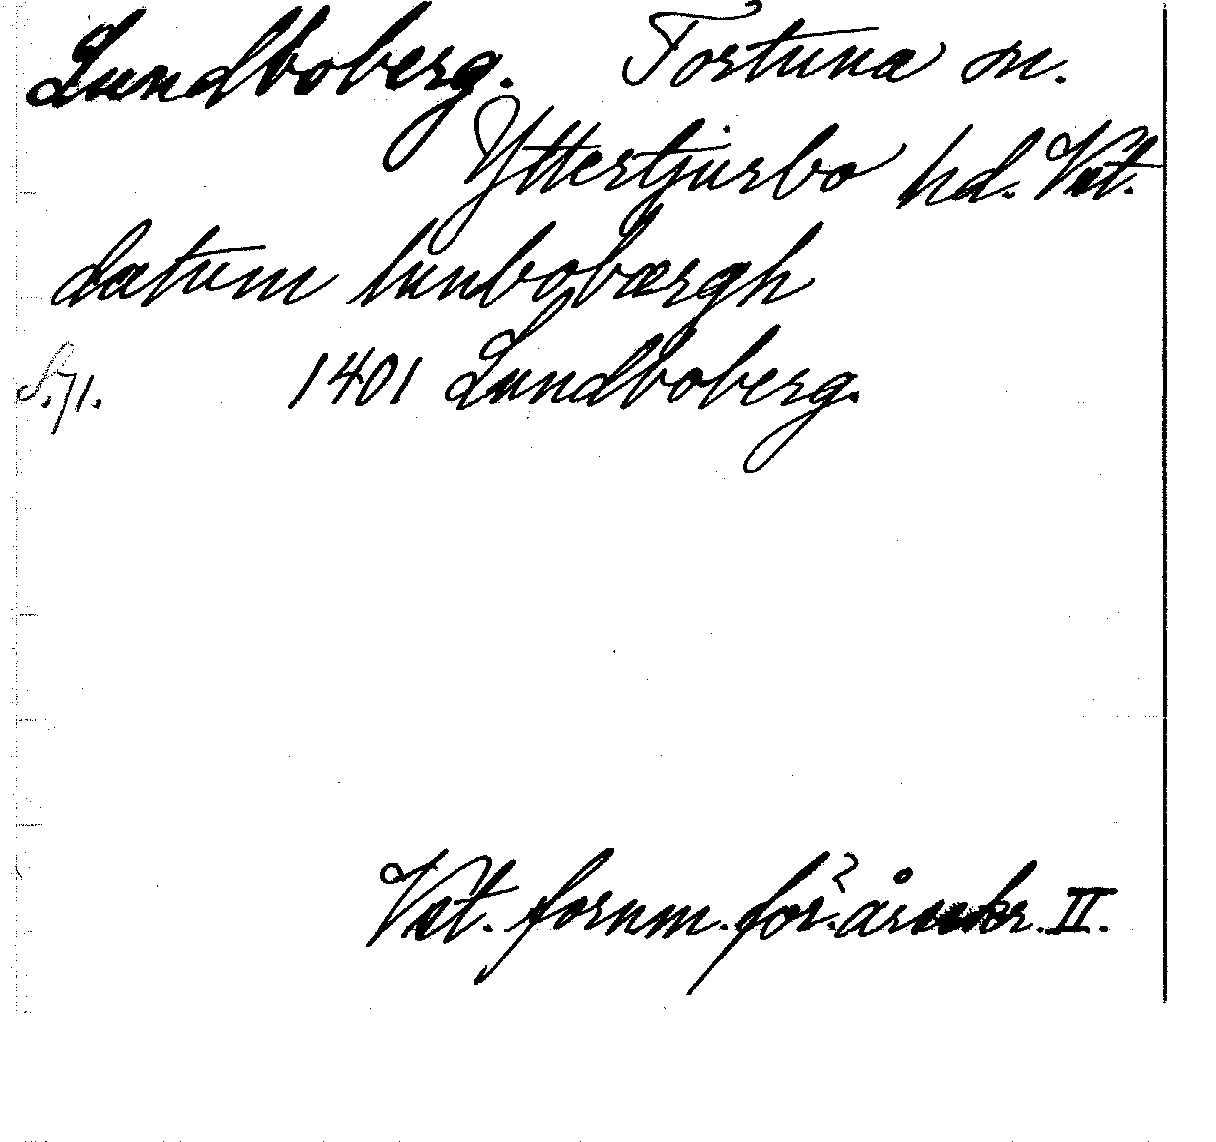 Lundboberg. Tortuna sn.
Yttertjurbo hd. Vst.
datum lunbobærgh
S. 71. 1401 Lundboberg.
Vst. fornm. för. årsskr. II.